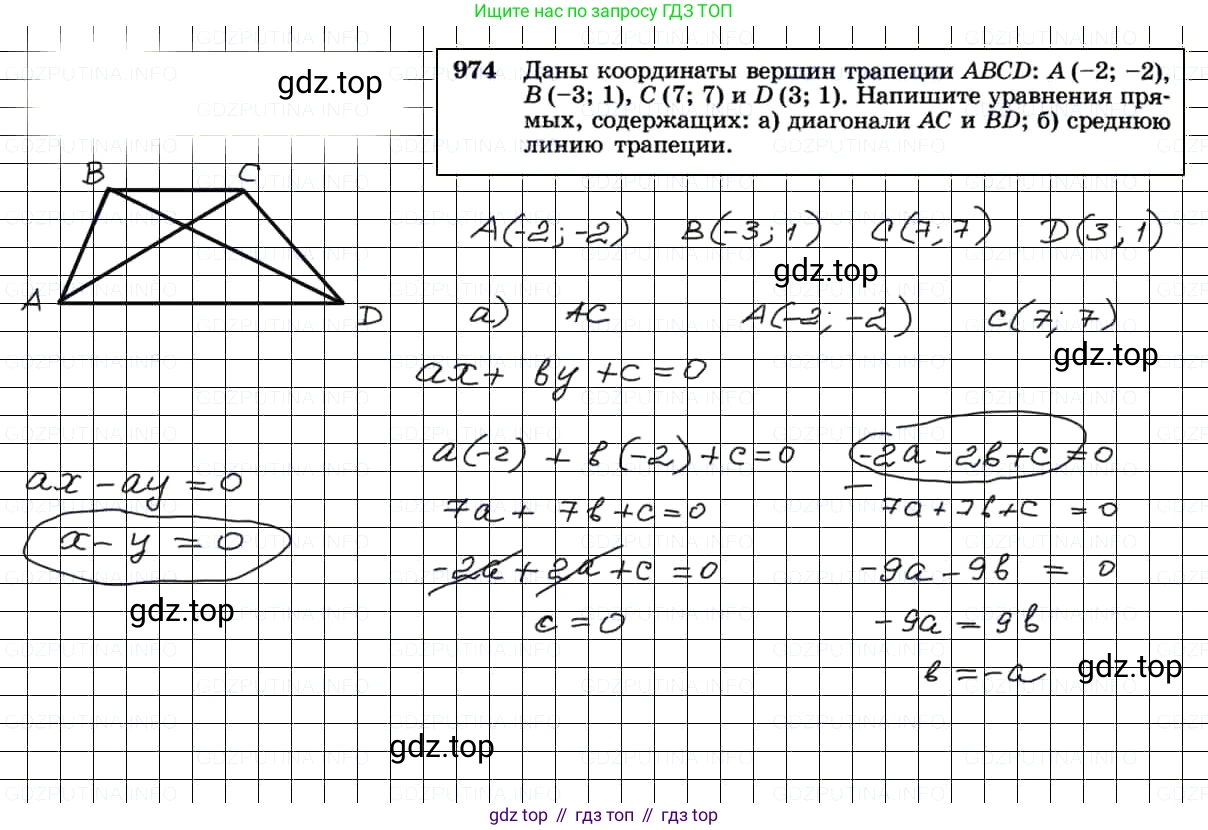 Ищите нас по запросу ГДЗ ТОП
974 Даны координаты вершин трапеции ABCD: A (−2; −2),
B (−3; 1), C (7; 7) и D (3; 1). Напишите уравнения пря-
мых, содержащих: а) диагонали AC и BD; б) среднюю
линию трапеции.
gdz.top
B C
A D
A(-2; -2) B(-3; 1) C(7; 7) D(3; 1)
gdz.top
а) AC A(-2; -2) C(7; 7)
gdz.top
ax + by + c = 0
a(-2) + b(-2) + c = 0 -2a - 2b + c = 0
7a + 7b + c = 0 − 7a + 7b + c = 0
-2a + 2a + c = 0 -9a - 9b = 0
c = 0 -9a = 9b
b = -a
gdz.top
ax - ay = 0
x - y = 0
gdz.top
gdz.top
GDZPUTINA.INFO
gdz top // гдз топ // gdz top